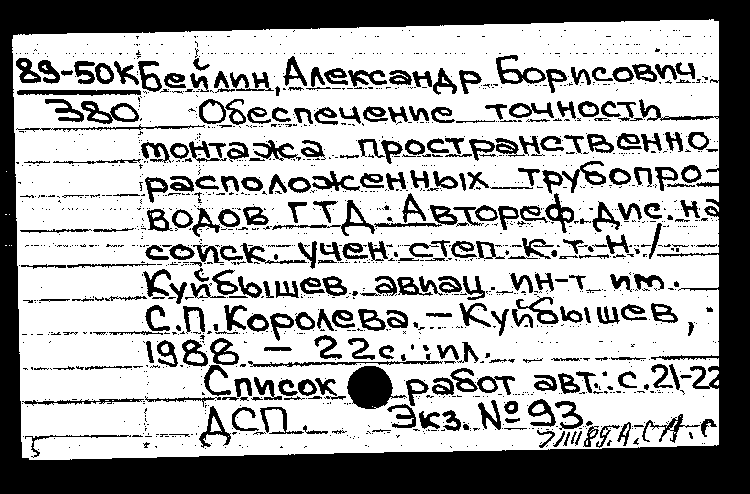 89-50К Бейлин, Александр Борисович
380 Обеспечение точности
монтажа пространственно
расположенных трубопро-
водов ГТД : Автореф. дис. на
соиск. учен. степ. к.т.н. /
Куйбышев. авиац. ин-т им.
С.П. Королева. – Куйбышев,
1988. – 22с. : ил.
Список работ авт.: с. 21-22
ДСП. Экз. № 93.
5